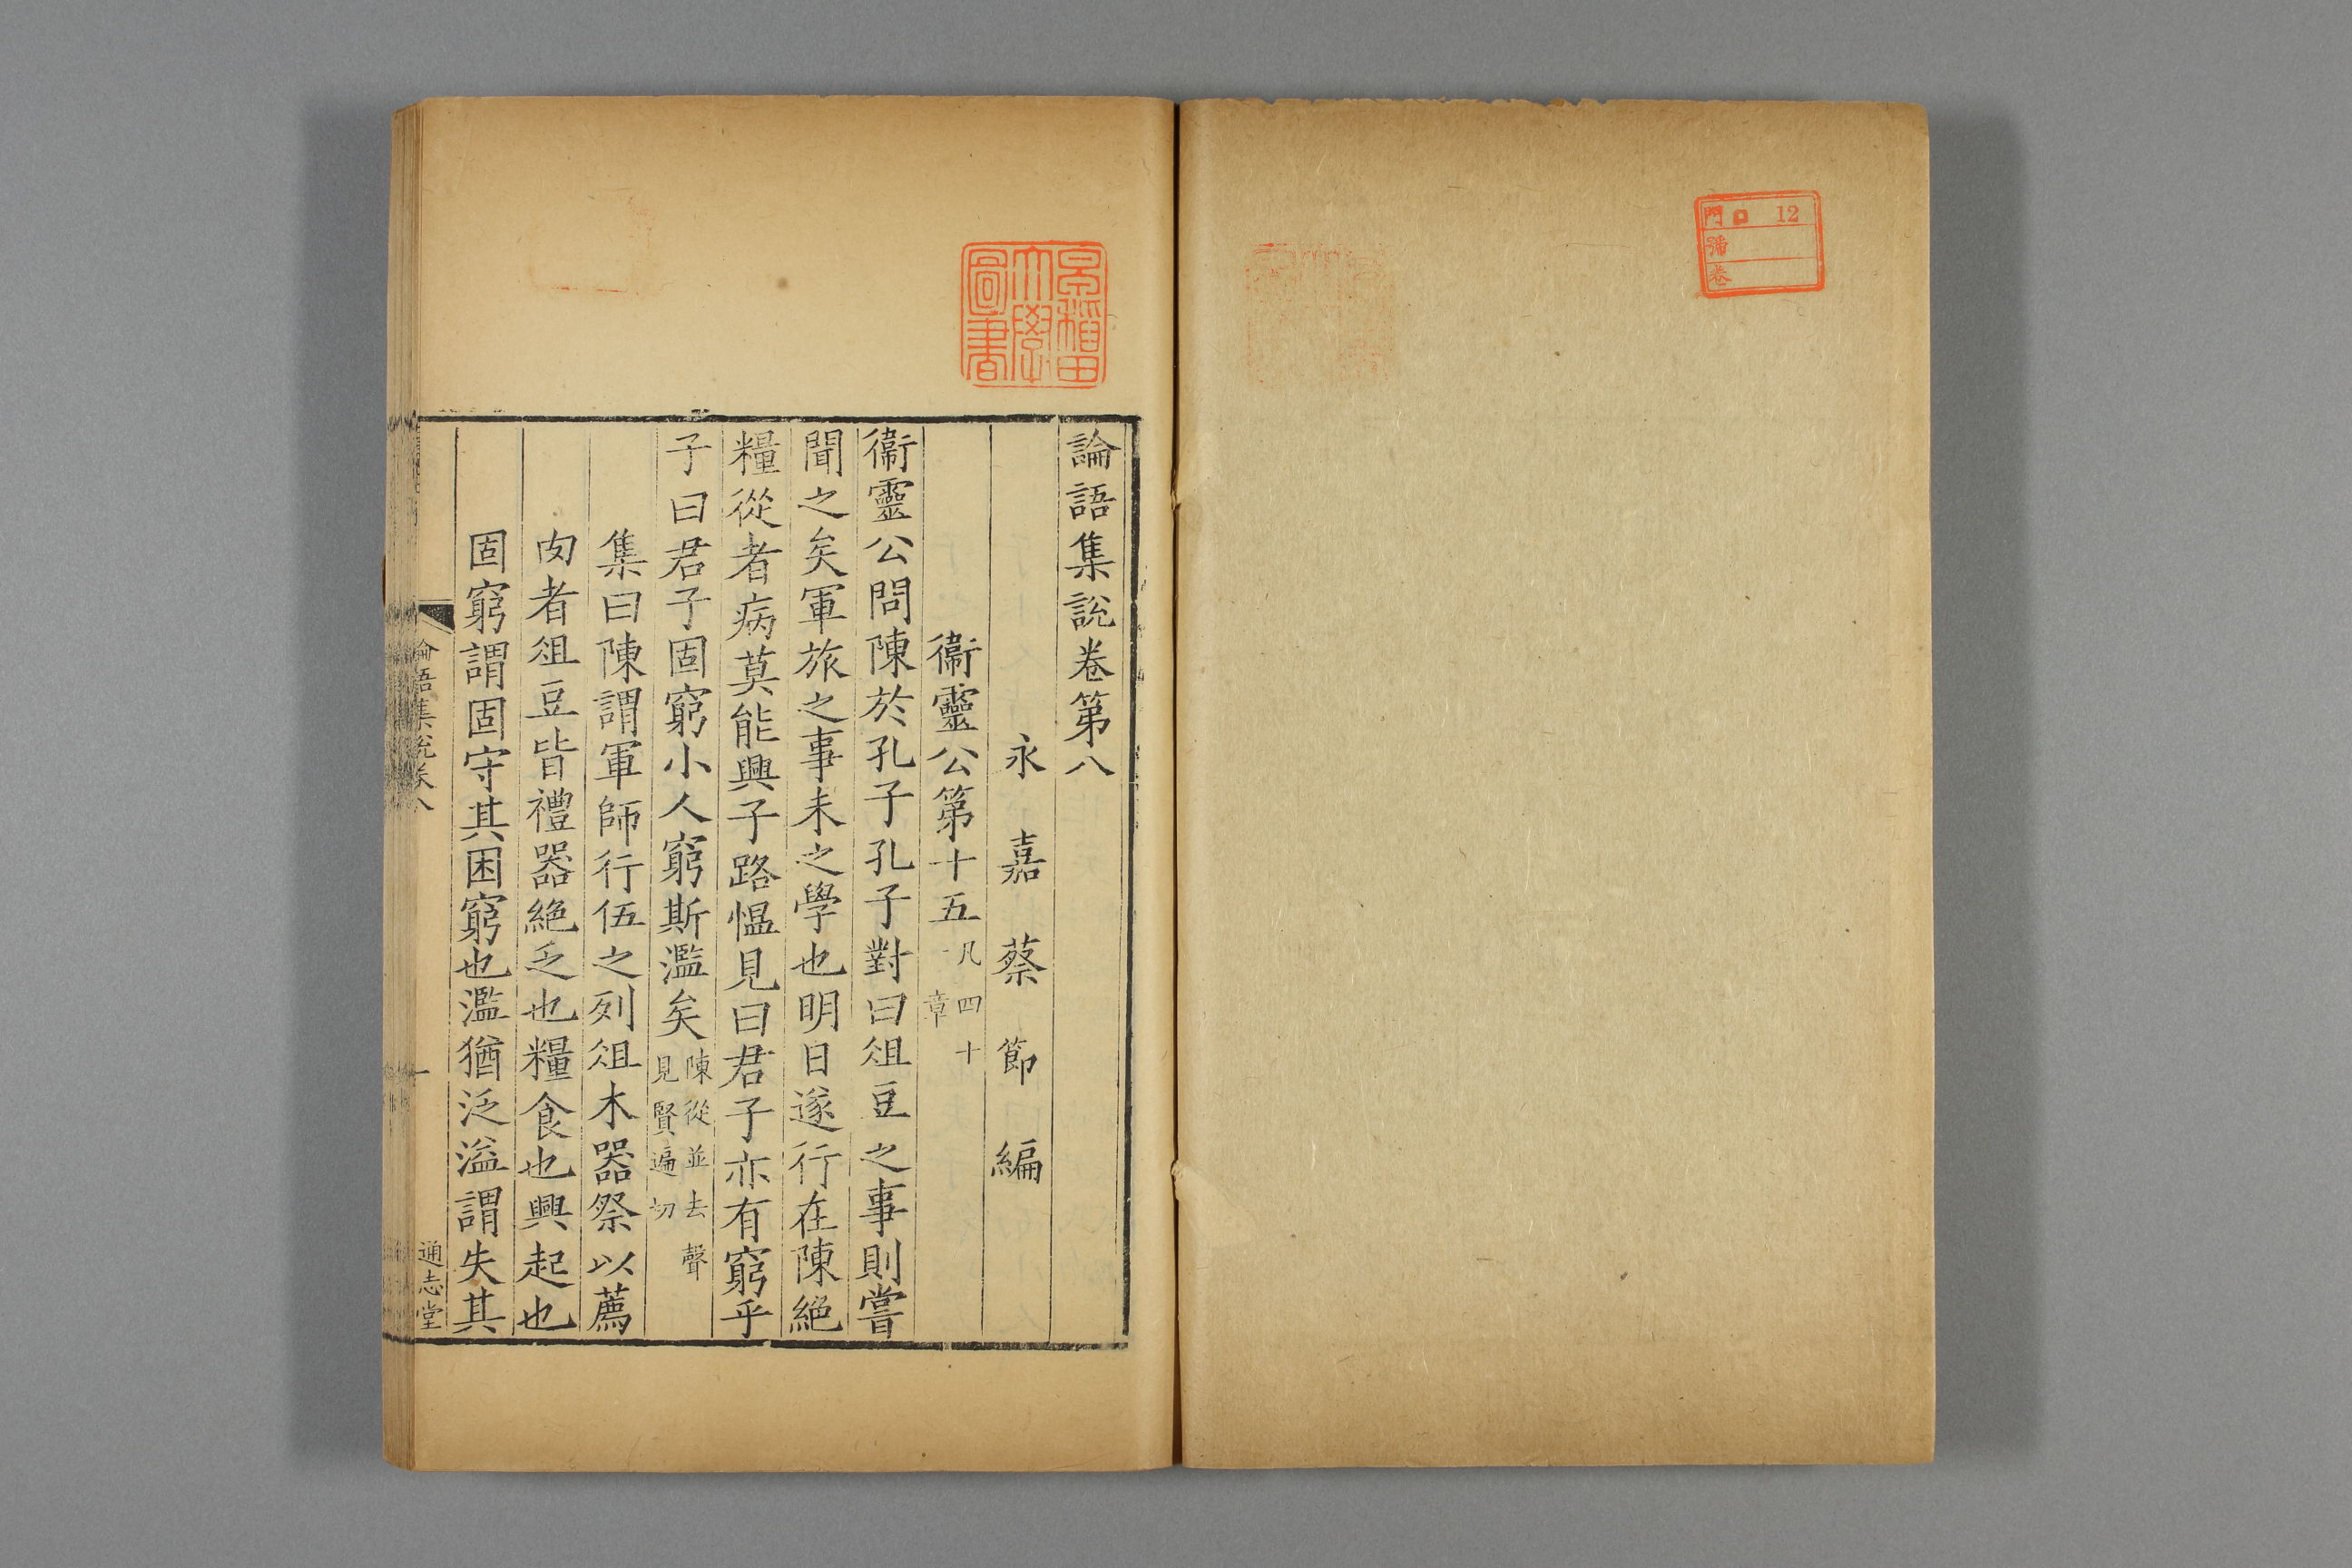 門 口 12
號
卷
早稲田
大學
圖書
論語集說卷第八
永嘉蔡節編
衞靈公第十五 凡四十
一章
衞靈公問陳於孔子孔子對曰俎豆之事則嘗
聞之矣軍旅之事未之學也明日遂行在陳絕
糧從者病莫能興子路慍見曰君子亦有窮乎
子曰君子固窮小人窮斯濫矣 陳從並去聲
見賢遍切
集曰陳謂軍師行伍之列俎木器祭以薦
肉者俎豆皆禮器絕乏也糧食也興起也
固窮謂固守其困窮也濫猶泛溢謂失其
論語集說卷八
一
通志堂